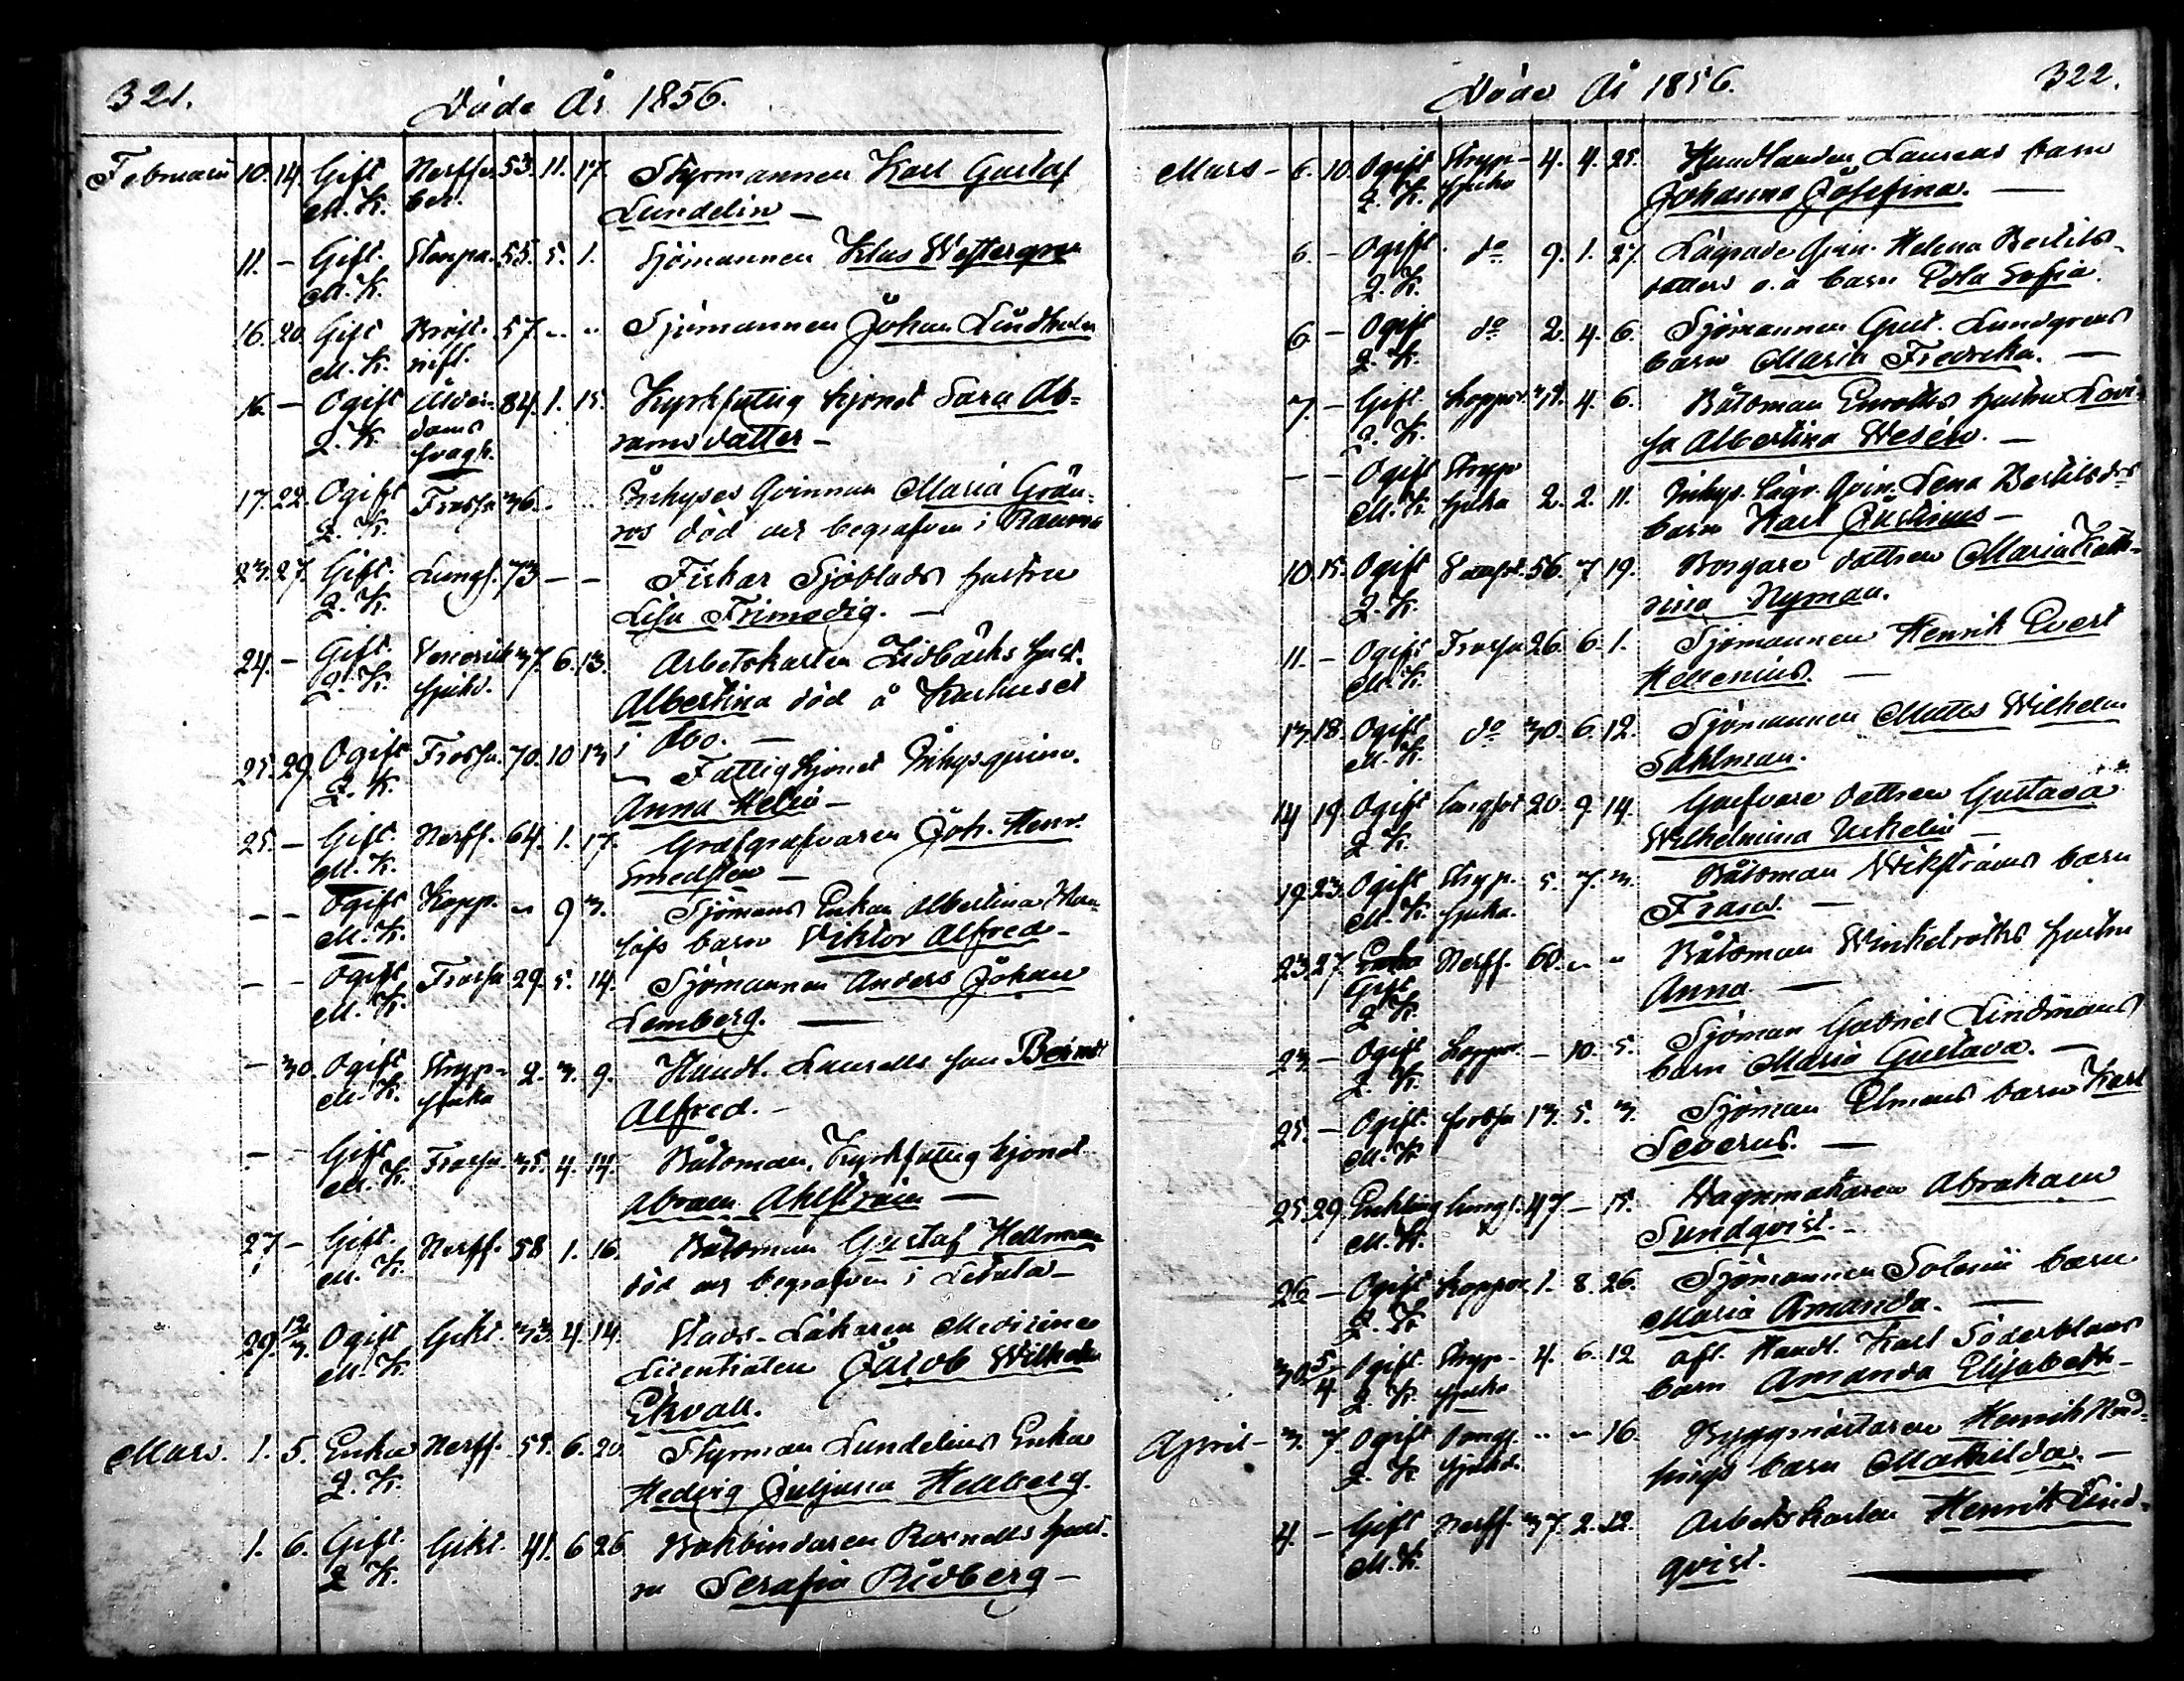 321.
Döde År 1856.
Februarii 10. 14. Gift Nerffe- 53. 11. 17. Styrmannen Karl Gustaf
M. K. ber. Lundelin -
11. - Gift. 55. 5. 1. Sjömannen Klas Westergren
M. K.
16. 20. Gift Bröst- 57. - - Sjömannen Johan Lindholm
M. K. infl.
16. - Ogift Ålder- 84. 1. 15. Kyrkfattig hjonet Sara Ab-
Q. K. doms ramsdatter -
svagh.
17. 22. Ogift Frossa 36. - - Inhyses Qvinnan Maria Grön-
Q. K. ros död och begrafven i Raumo
23. 27. Gift. Lungs. 73 - - Fiskar Sjöblads hustru
Q. K. Lisa Frimodig. -
24. - Gift. Venerisk 37. 6. 13. Arbetskarlen Lidbäcks hust.
Q. K. sjukd. Albertina död å Kurhuset
i Åbo. -
25. 29. Ogift Frossa. 70. 10 13 Fattighjonet Inhysqvinn.
Q. K. Anna Helin -
25. - Gift. Nerff. 64. 1. 17. Grafgrafvaren Joh. Henr.
M. K. Smedsten -
- - Ogift Kopp. - 9 3. Sjömans Enkan Albertina
M. K. barn Viktor Alfred -
- - Ogift Frossa 29. 5. 14. Sjömannen Anders Johan
M. K. Lemberg. -
- 30. Ogift Stryp- 2. 3. 9. Handl. Laurells son Berndt
M. K. sjuka Alfred. -
- - Gift Frossa. 35. 4. 14. Båtsman, Kyrkfattig hjonet
M. K. Abram Ahlström -
27 - Gift. Nerff. 58 1. 16. Båtsman Gustaf Hellman
M. K. död och begrafven i Letala -
29. 12/3. Ogift Gikt. 33. 4. 14. Stads-Läkaren Medicine
M. K. Licentiaten Jacob Wilhelm
Ekvall.
Mars. 1. 5. Enka Nerff. 59. 6. 20. Styrman Lundelins Enka
Q. K. Hedvig Juljana Hellberg.
1. 6. Gift. Gikt. 41. 6 26 Bokbindaren Rosnells hust-
Q. K. ru Serafia Ridberg -
Döde År 1856.
322.
Mars - 6. 10. Ogift Stryp- 4. 4. 25. Handlanden Laurens barn
Q. K. sjuka Johanna Josefina. -
6. - Ogift. do 9. 1. 27. Lägrade Qvin. Helena Bertils-
Q. K. dotters o.ä barn Eva Sofia.
6. - Ogift do 2. 4. 6. Sjömannen Gust. Lundgrens
Q. K. barn Maria Fredrika. -
7. - Gift. koppor 4. 6. Båtsman Enroths hustru Lovi-
Q. K. sa Albertina Wesén. -
- - Ogift Stryp
M. K. sjuka 2. 2. 11. Inhys. lägr. Qvin. Lena Bertilsdrs
barn Karl Justinus -
10. 15. Ogift Vattsot. 56. 7 19. Borgare dottren Maria Kath-
Q. K. rina Nyman.
11. - Ogift Frossa 26. 6. 1. Sjömannen Henrik Evert
M. K. Hellenius. -
13. 18. Ogift do 30. 6. 12. Sjömannen Mattes Wilhelm
M. K. Sahlman.
14 19. Ogift lungsot 20. 9. 14. Garfvare dottren Gustava
Q. K. Wilhelmina Uskelin -
19. 23. Ogift Stryp. 5. 7. 3. Båtsman Wikströms barn
M. K. sjuka. Frans. -
23. 27. Enka Nerff. 60. - - Båtsman Winkelroths hustru
Gift Anna. -
Q. K.
23. - Ogift koppor. - 10. 5. Sjöman Gabriel Lindmans
Q. K. barn Maria Gustava. -
25. - Ogift. frossa 13. 5. 3. Sjöman Elmens barn Karl
M. K. Severus. -
25. 29. Enkling lungs. 47 - 15. Vagnmakaren Abraham
M. K. Sundqvist. -
26 - Ogift koppor 1. 8. 26. Sjömannen Solenii barn
Q. K. Maria Amanda. -
30. 5/4 Ogift. Stryp- 4. 6. 12 afl. Handl. Karl Söderbloms
Q. K. sjuka barn Amanda Elisabeth -
April - 3. 7. Ogift - - 16. Byggmästaren Henrik Nord-
Q. K. sjukd. lings barn Mathilda. -
4. - Gift Nerff. 37. 2. 12. Arbetskarlen Henrik Lind-
M. K. qvist.